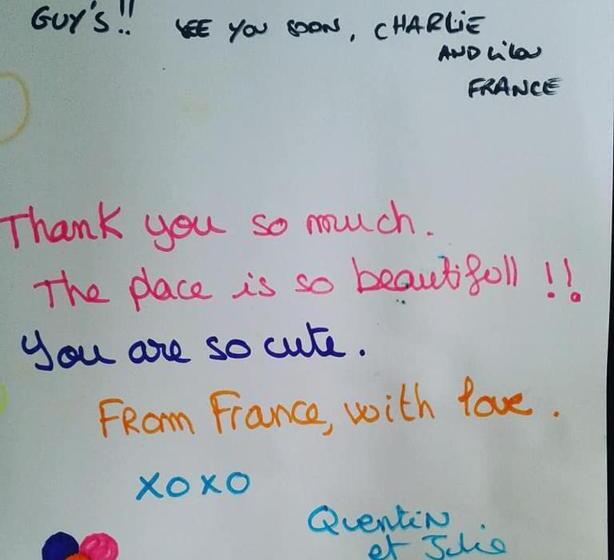 GUY'S!! SEE YOU SOON, CHARLIE
AND Lilou
FRANCE
Thank you so much.
The place is so beautifull !!
You are so cute.
From France, with love.
xoxo
Quentin
et Julie